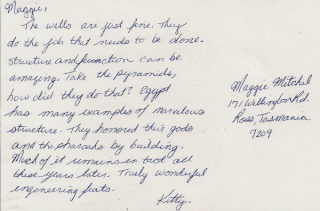 Maggie,
The wells are just fine. They
do the job that needs to be done.
Structure and function can be
amazing. Take the pyramids,
how did they do that? Egypt
has many examples of marvelous
structure. They honored their gods
and the pharoahs by building.
Much of it remains in tact all
these years later. Truly wonderful
engineering feats.
Kitty.
Maggie Mitchel
171 Wellington Rd.
Ross, Tasmania
7209